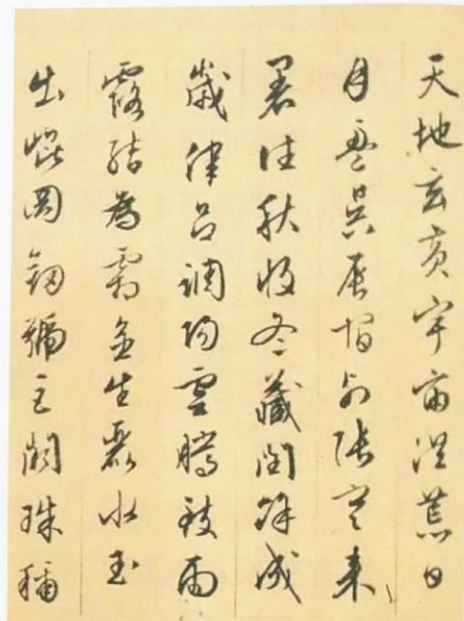 天地玄黃宇宙洪荒日
月盈昃辰宿列張寒來
暑往秋收冬藏閏餘成
歲律呂調陽雲騰致雨
露結為霜金生麗水玉
出崐岡劒號巨闕珠稱